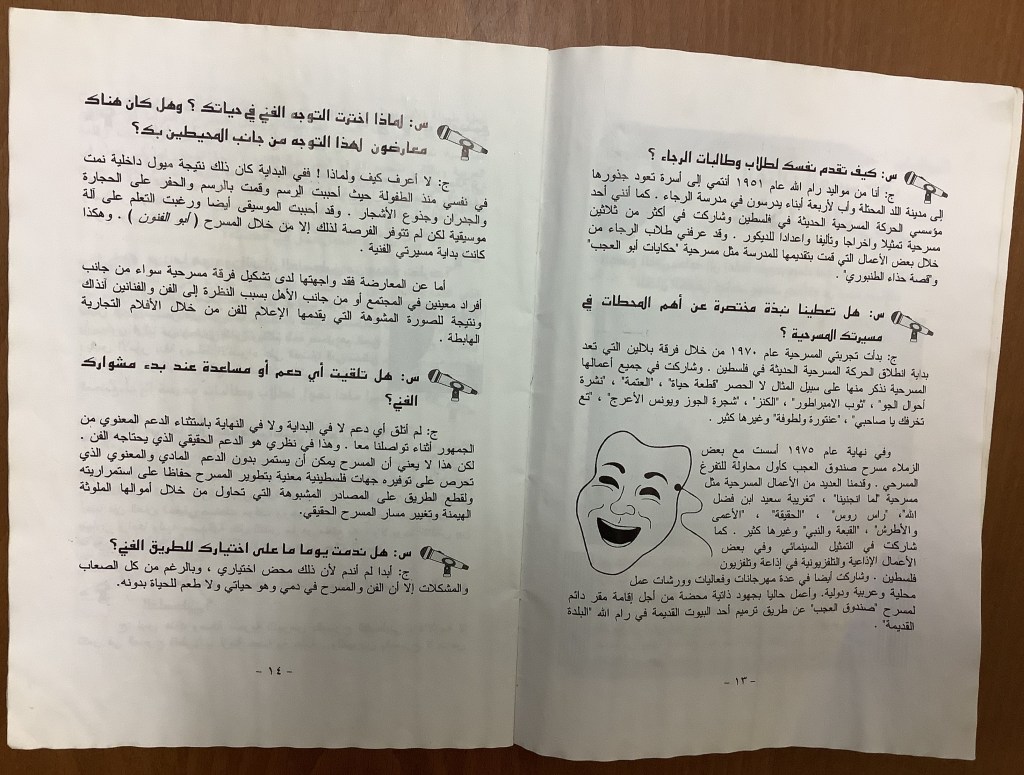 س: كيف تقدم نفسك لطلاب وطالبات الرجاء ؟
ج: أنا من مواليد رام الله عام ١٩٥١ أنتمي إلى أسرة تعود جذورها
إلى مدينة اللد المحتلة وأب لأربعة أبناء يدرسون في مدرسة الرجاء . كما أنني أحد
مؤسسي الحركة المسرحية الحديثة في فلسطين وشاركت في أكثر من ثلاثين
مسرحية تمثيلا واخراجا وتأليفا واعدادا للديكور . وقد عرفني طلاب الرجاء من
خلال بعض الأعمال التي قمت بتقديمها للمدرسة مثل مسرحية "حكايات أبو العجب"
و"قصة حذاء الطنبوري" .
س: هل تعطينا نبذة مختصرة عن أهم المحطات في
مسيرتك المسرحية ؟
ج: بدأت تجربتي المسرحية عام ١٩٧٠ من خلال فرقة بلالين التي تعد
بداية انطلاق الحركة المسرحية الحديثة في فلسطين . وشاركت في جميع أعمالها
المسرحية نذكر منها على سبيل المثال لا الحصر "قطعة حياة" ، "العتمة" ، "نشرة
أحوال الجو" ، "ثوب الامبراطور" ، "الكنز" ، "شجرة الجوز ويونس الأعرج" ، "تع
تخرفك يا صاحبي" ، "عنتورة ولطوفة" وغيرها كثير .
وفي نهاية عام ١٩٧٥ أسست مع بعض
الزملاء مسرح صندوق العجب كأول محاولة للتفرغ
المسرحي . وقدمنا العديد من الأعمال المسرحية مثل
مسرحية "لما انجنينا" ، "تغريبة سعيد ابن فضل
الله"، "راس روس" ، "الحقيقة" ، "الأعمى
والأطرش" ، "القبعة والنبي" وغيرها كثير . كما
شاركت في التمثيل السينمائي وفي بعض
الأعمال الإذاعية والتلفزيونية في إذاعة وتلفزيون
فلسطين . وشاركت أيضا في عدة مهرجانات وفعاليات وورشات عمل
محلية وعربية ودولية. وأعمل حاليا بجهود ذاتية محضة من أجل إقامة مقر دائم
لمسرح "صندوق العجب" عن طريق ترميم أحد البيوت القديمة في رام الله "البلدة
القديمة" .
- ١٣ -
س: لماذا اخترت التوجه الفني في حياتك ؟ وهل كان هناك
معارضون لهذا التوجه من جانب المحيطين بك؟
ج: لا أعرف كيف ولماذا ! ففي البداية كان ذلك نتيجة ميول داخلية نمت
في نفسي منذ الطفولة حيث أحببت الرسم وقمت بالرسم والحفر على الحجارة
والجدران وجذوع الأشجار . وقد أحببت الموسيقى أيضا ورغبت التعلم على آلة
موسيقية لكن لم تتوفر الفرصة لذلك إلا من خلال المسرح ( أبو الفنون ) . وهكذا
كانت بداية مسيرتي الفنية .
أما عن المعارضة فقد واجهتها لدى تشكيل فرقة مسرحية سواء من جانب
أفراد معينين في المجتمع أو من جانب الأهل بسبب النظرة إلى الفن والفنانين آنذاك
ونتيجة للصورة المشوهة التي يقدمها الإعلام للفن من خلال الأفلام التجارية
الهابطة .
س: هل تلقيت أي دعم أو مساعدة عند بدء مشوارك
الفني؟
ج: لم أتلق أي دعم لا في البداية ولا في النهاية باستثناء الدعم المعنوي من
الجمهور أثناء تواصلنا معا . وهذا في نظري هو الدعم الحقيقي الذي يحتاجه الفن .
لكن هذا لا يعني أن المسرح يمكن أن يستمر بدون الدعم المادي والمعنوي الذي
تحرص على توفيره جهات فلسطينية معنية بتطوير المسرح حفاظا على استمراريته
ولقطع الطريق على المصادر المشبوهة التي تحاول من خلال أموالها الملوثة
الهيمنة وتغيير مسار المسرح الحقيقي.
س: هل ندمت يوما ما على اختيارك للطريق الفني؟
ج: أبدا لم أندم لأن ذلك محض اختياري ، وبالرغم من كل الصعاب
والمشكلات إلا أن الفن والمسرح في دمي وهو حياتي ولا طعم للحياة بدونه.
- ١٤ -